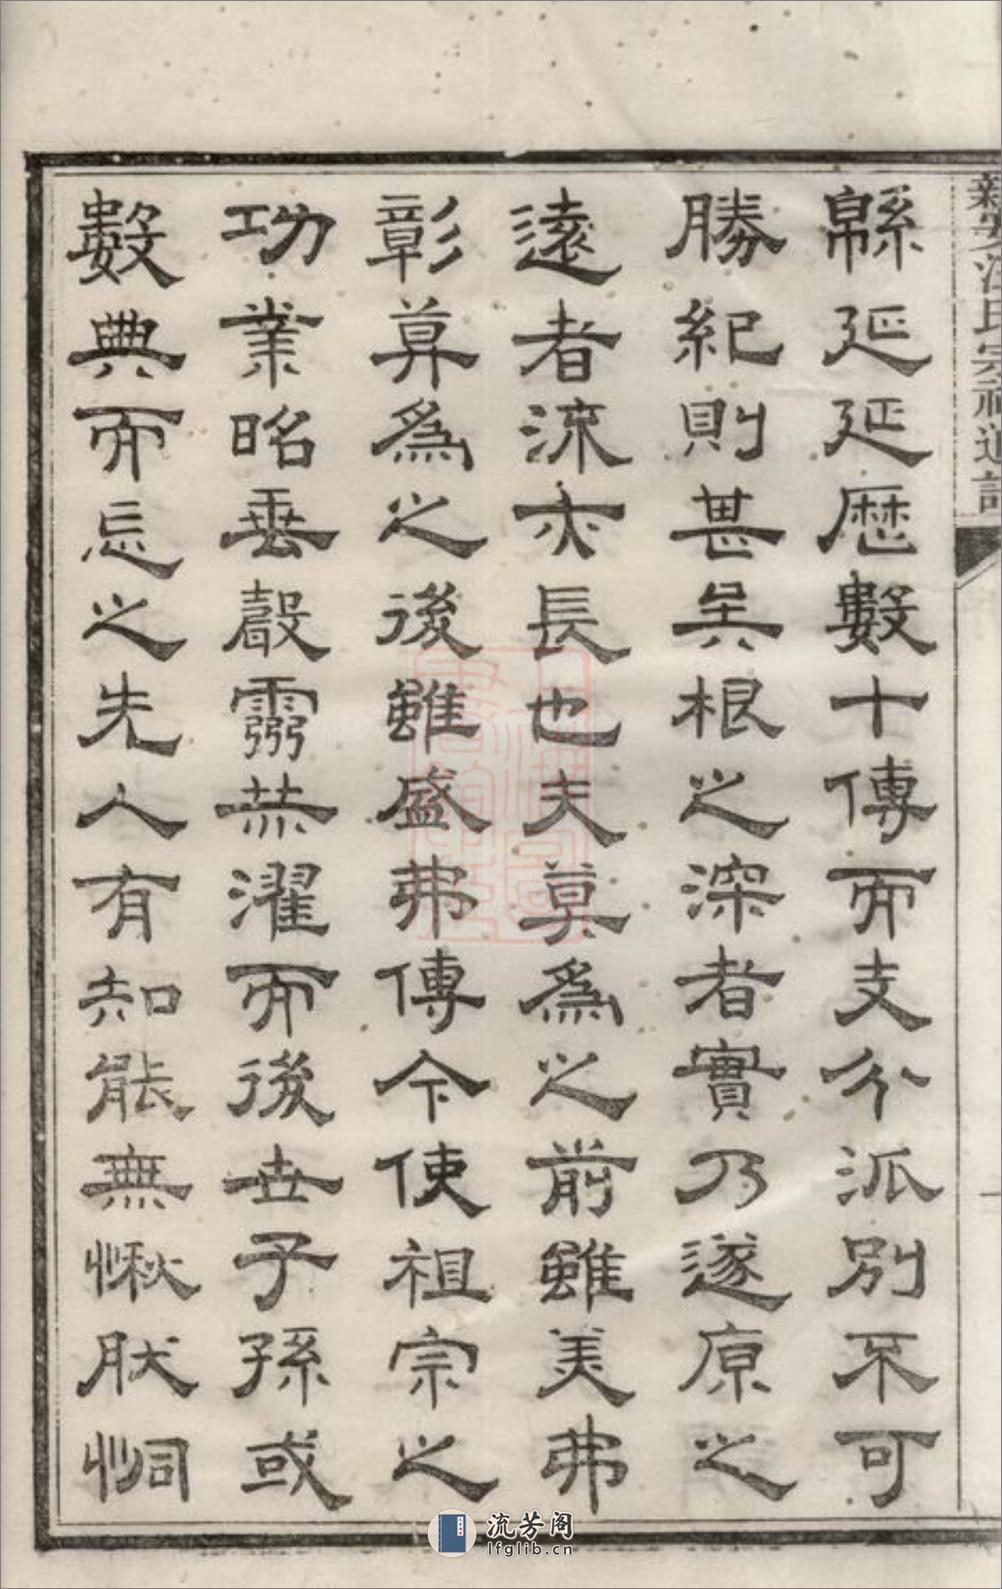 新安汪氏宗祠通譜
緜延延歷數十傳而支分派別不可
勝紀則甚矣根之深者實乃遂原之
遠者流亦長也夫莫爲之前雖美弗
彰莫爲之後雖盛弗傳今使祖宗之
功業昭垂聲靈赫濯而後世子孫或
數典而忘之先人有知能無愀肰恫
流芳阁
lfglib.cn